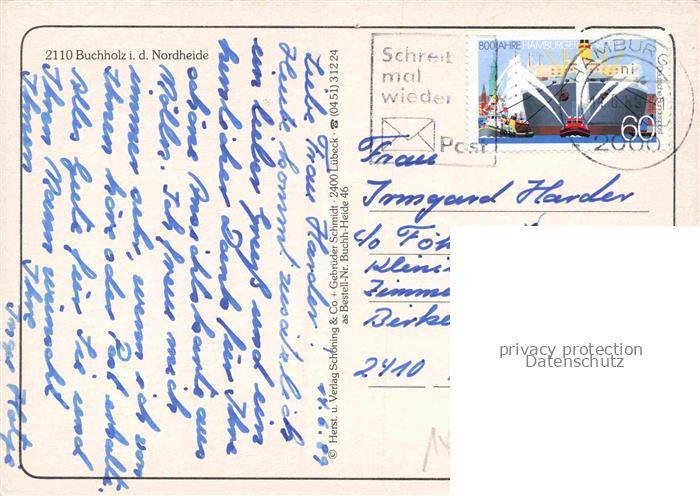 2110 Buchholz i. d. Nordheide
11.6.89
Liebe Frau Harder!
Heute kommt zusätzlich
ein lieber Gruß und ein
herzlicher Dank für Ihre
schöne Ansichtskarte aus
Mölln. Ich freue mich
immer sehr, wenn ich von
Ihnen höre oder Post erhalte.
Alles Gute für Sie und
Ihren Mann wünscht
Ihnen Ihre
© Herst. u. Verlag Schöning & Co + Gebrüder Schmidt · 2400 Lübeck · ☎ (04 51) 3 12 24
as Bestell-Nr. Buchh-Heide 46
Schreib
mal
wieder
Post
800 JAHRE HAMBURGER
Deutsche Bundespost
60
HAMBURG
2000
Frau
Irmgard Harder
c/o Föh
Klini
Zimme
Birke
2410
privacy protection
Datenschutz